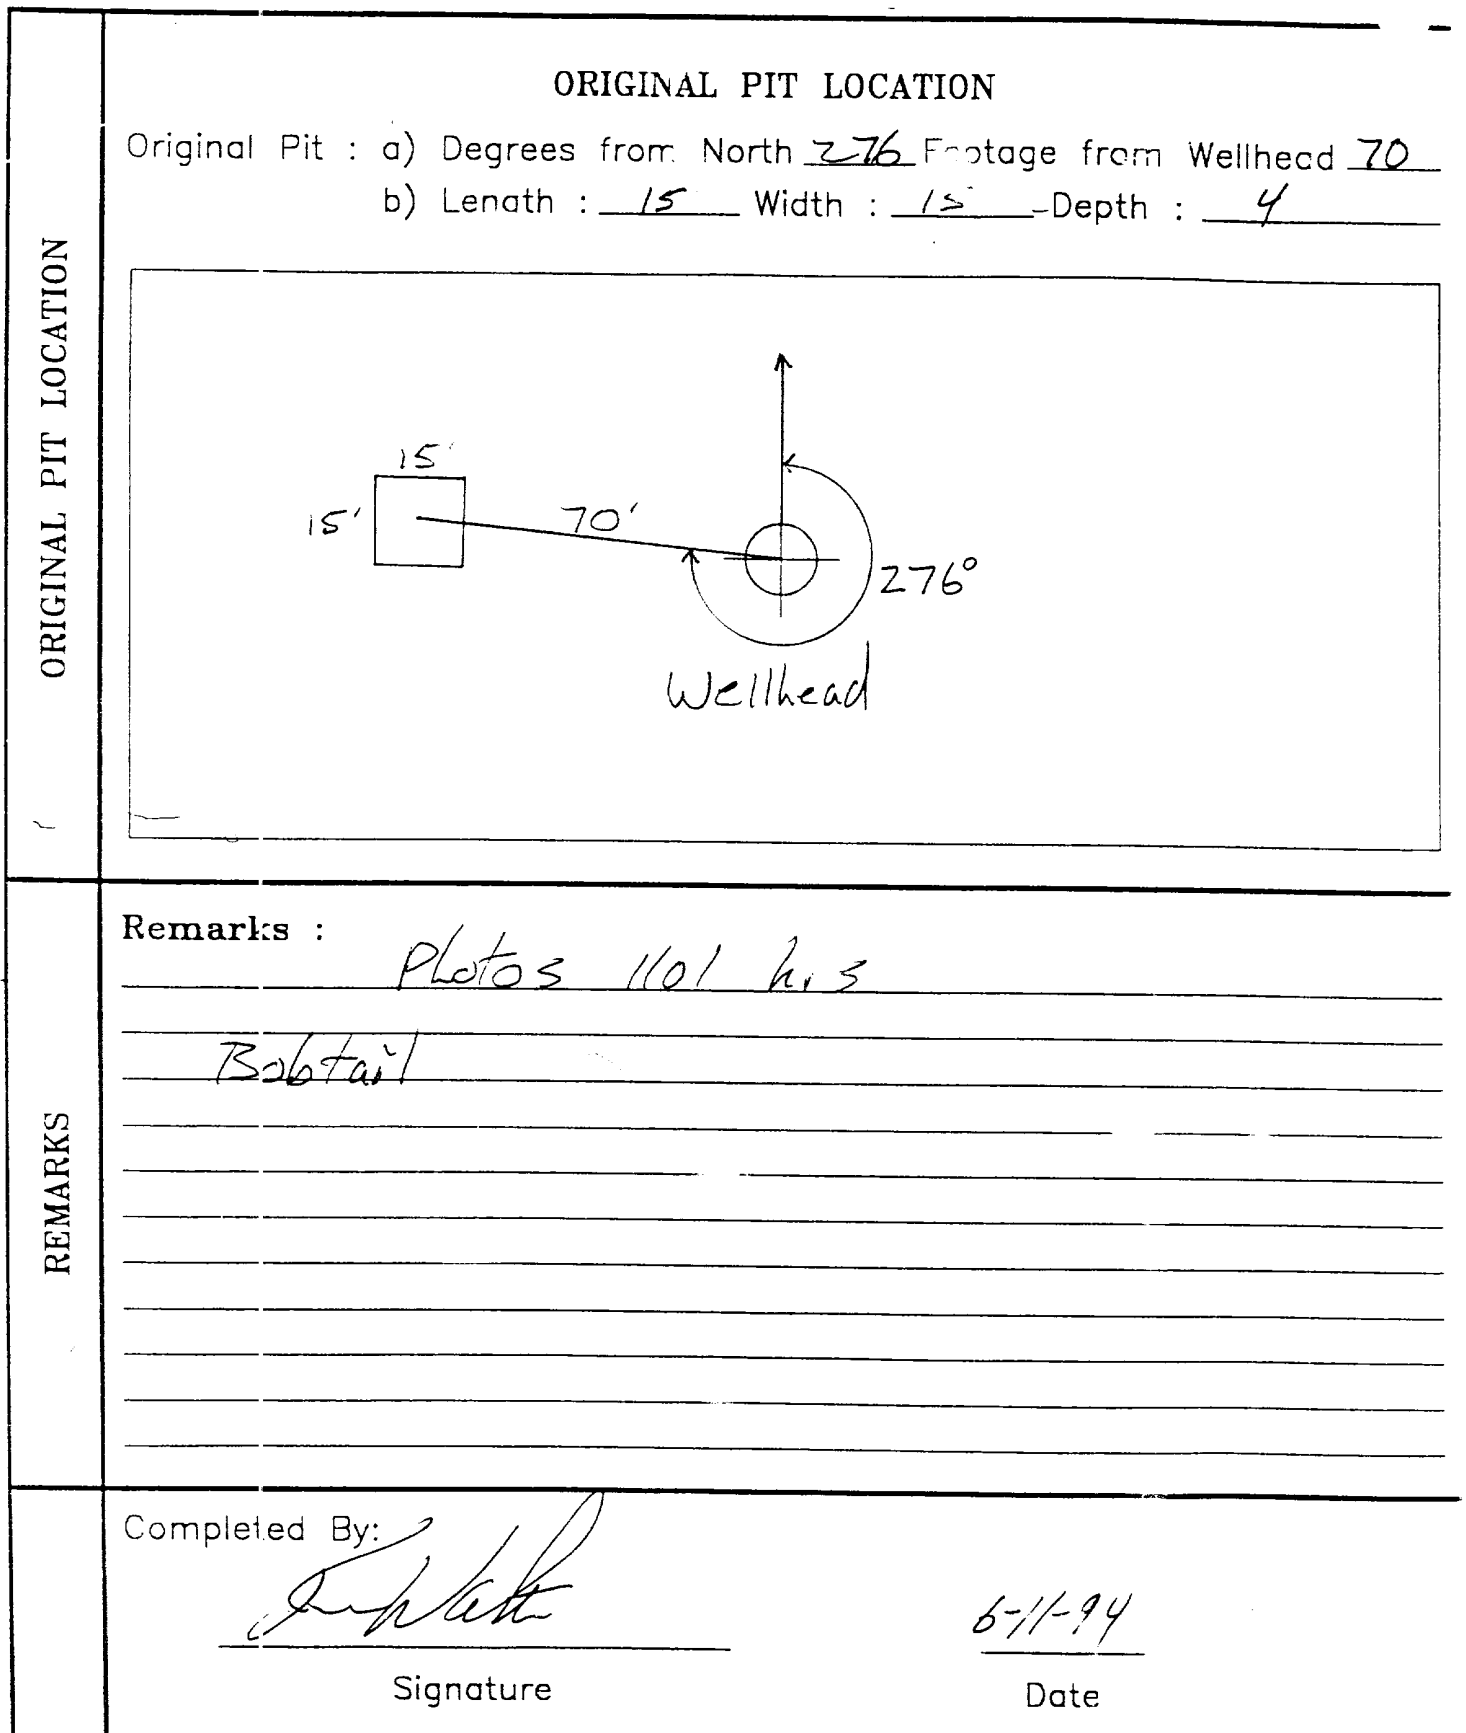 ORIGINAL PIT LOCATION
ORIGINAL PIT LOCATION
Original Pit : a) Degrees from North 276 Footage from Wellhead 70
b) Length : 15 Width : 15 Depth : 4
15'
15'
70'
276°
Wellhead
REMARKS
Remarks :
Photos 1101 hrs
Bobtail
Completed By:
6-11-94
Signature
Date